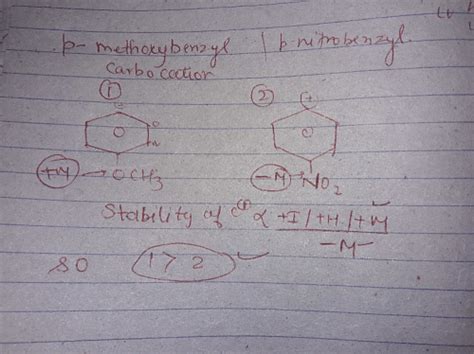 p- methoxybenzyl | p nitrobenzyl.
Carbocation
① ②
⊕ ⊕
o
m
+M → OCH3 -M NO2
Stability of C⊕ α +I/+H/+M
-M-
SO 1 > 2